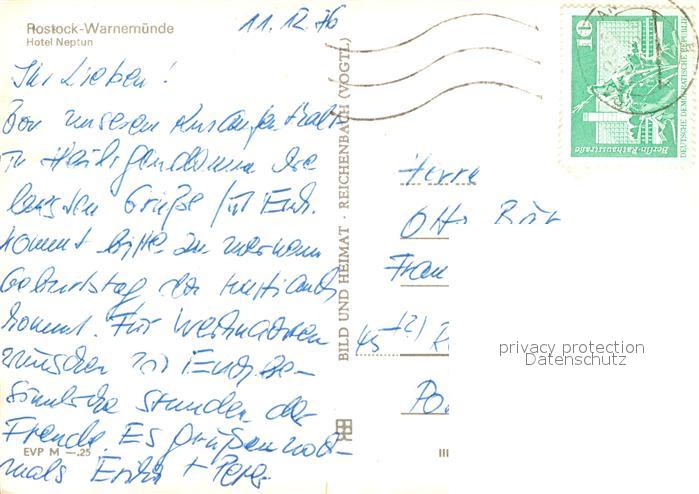 Rostock-Warnemünde
Hotel Neptun
11.12.76
Ihr Lieben!
Von unserem Kuraufenthalt
in Heiligendamm die
besten Grüße für Euch.
kommt bitte zu meinem
Geburtstag
kommt. Für Weihnachten
wünschen wir Euch be-
sinnliche Stunden der
Freude. Es grüßen noch-
mals Erika +
EVP M —.25
BILD UND HEIMAT · REICHENBACH (VOGTL)
III
10
Berlin-Rathausstraße
DEUTSCHE DEMOKRATISCHE REPUBLIK
Herrn
Otto
Frau
45
privacy protection
Datenschutz